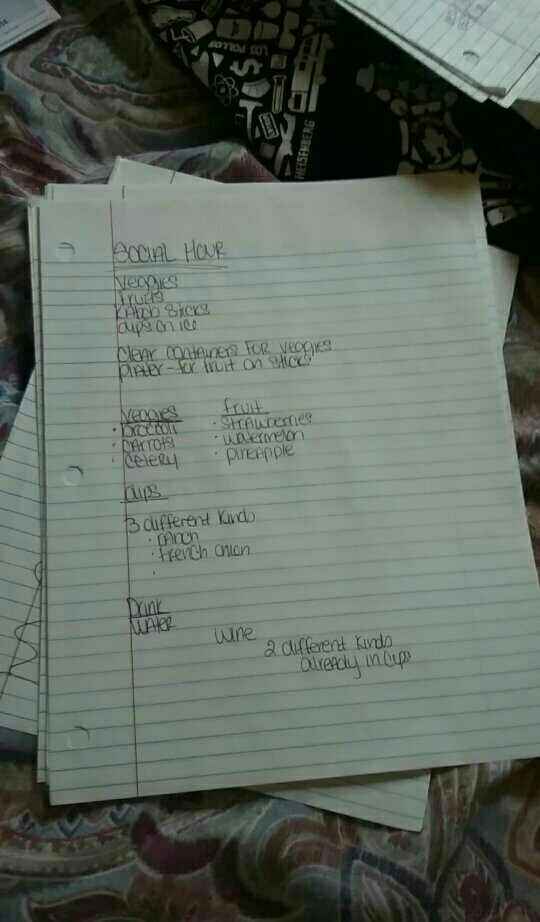 LOS POLLOS
HEISENBERG
SOCIAL HOUR
Veggies
fruits
KABOB STICKS
dips on ice
Clear containers for veggies
plater - for fruit on sticks
Veggies fruit
· Broccoli · Strawberries
· CARROTS · watermelon
· Celery · pineapple
dips
3 different kinds
· ranch
· french onion
·
Drink
WATER
Wine
2 different kinds
already in cups